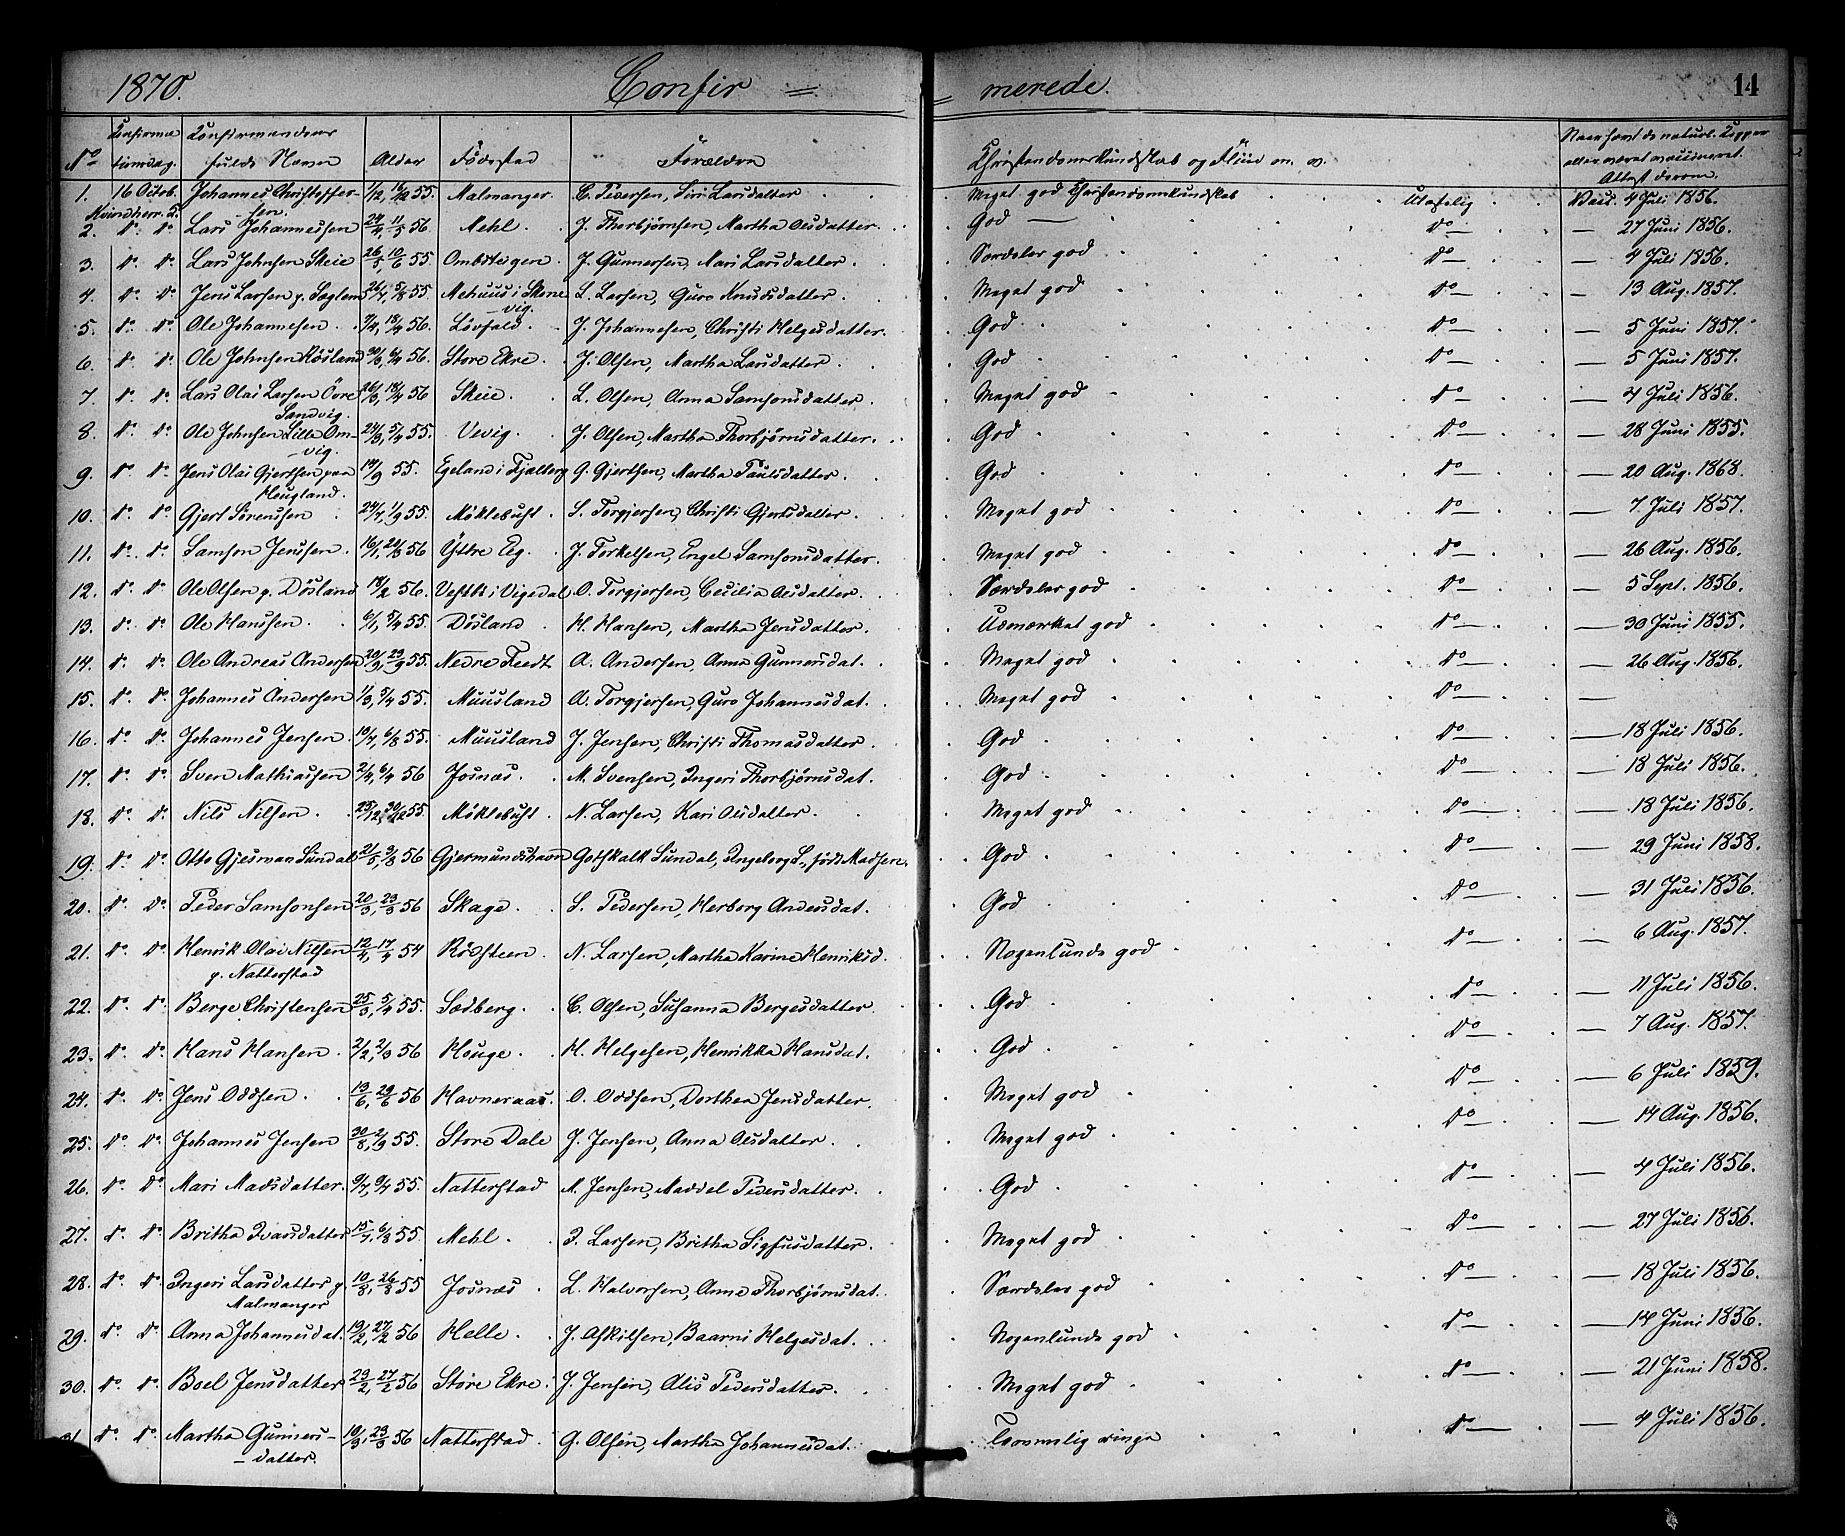 1870. Confir = = merede. 14
No Confirmations dag. Konfirmandens fulde Navn Alder Födested Forældre Christendomskundskab og Fliid m. v. Naar havt de naturl. Kopper eller været vaccineret. Attest derom.
1. 16 Octob. Kvindherr. K. Johannes Christoffersen. 1/2, 16/2 55. Malmanger. C. Pedersen, Siri Larsdatter Meget god Christendomskundskab Udadlig Vacc. 4 Juli 1856.
2. do do Lars Johannessen 24/4, 11/5 56 Mehl. J. Thorbjørnsen, Martha Olsdatter. God do — 27 Juni 1856.
3. do do Lars Johnsen Skeie 26/5, 10/6 55. Ombstegen. J. Gunnersen, Mari Larsdatter. Særdeles god do — 4 Juli 1856.
4. do do Jens Larsen p. Seglem 26/7, 5/8 55 Mehuus i Skonevig. L. Larsen, Guro Knudsdatter. Meget god do — 13 Aug. 1857.
5. do do Ole Johannesen 7/4, 18/4 56. Løvfald. J. Johannesen, Christi Helgesdatter. God do — 5 Juni 1857.
6. do do Ole Johnsen Røsland 30/3, 6/4 56. Store Ekre. J. Olsen, Martha Larsdatter. God do — 5 Juni 1857.
7. do do Lars Olai Larsen Övre Sandvig. 26/3, 18/4 56 Skeie. L. Olsen, Anna Samsonsdatter. Meget god do — 4 Juli 1856.
8. do do Ole Johnsen Lille Omvig. 24/3, 5/4 55. Vevig. J. Olsen, Martha Thorbjørnsdatter. God do — 28 Juni 1855.
9. do do Jens Olai Gjertsen paa Hougland. 14/9 55. Egeland i Fjelberg G. Gjertsen, Martha Paulsdatter. God do — 20 Aug. 1868.
10. do do Gjert Sörensen 24/7, 1/9 55. Möklebust. S. Torgjersen, Christi Gjertsdatter. Meget god do — 7 Juli 1857.
11. do do Samson Jensen. 16/1, 24/3 56 Yttre Eg. J. Torkelsen, Engel Samsonsdatter. Meget god do — 26 Aug. 1856.
12. do do Ole Olsen p. Dösland 18/2 56. Vestbø i Vigedal O. Torgjersen, Cecilia Olsdatter. Særdeles god do — 5 Sept. 1856.
13. do do Ole Hansen. 6/1, 5/4 55. Dösland H. Hansen, Martha Jensdatter. Udmærket god do — 30 Juni 1855.
14. do do Ole Andreas Andersen 20/9, 23/9 55. Nedre Feedt A. Andersen, Anna Gunnersdat. Meget god do — 26 Aug. 1856.
15. do do Johannes Andersen 1/3, 9/4 55. Muusland A. Torgjersen, Guro Johannesdat. Meget god do —
16. do do Johannes Jensen. 19/7, 6/8 55. Muusland J. Jensen, Christi Thomasdatter. God do — 18 Juli 1856.
17. do do Sven Mathiassen 2/4, 6/4 56 Josnæs. M. Svensen, Ingeri Thorbjørnsdat. God do — 18 Juli 1856.
18. do do Nils Nilsen. 25/12, 30/12 55. Möklebust N. Larsen, Kari Olsdatter. Meget god do — 18 Juli 1856.
19. do do Otto Gjerman Sundal 21/5, 3/8 56 Gjermundshavn Gotskalk Sundal, Ingeborg S., født Madsen. God do — 29 Juni 1858.
20. do do Peder Samsonsen 20/3, 23/3 56 Skage. S. Pedersen, Herborg Andersdat. God do — 31 Juli 1856.
21. do do Henrik Olai Nilsen p. Natterstad 12/4, 17/4 54 Rödsteen. N. Larsen, Martha Karine Henriksd. Nogenlunde god do — 6 Aug. 1857.
22. do do Berge Christensen 25/3, 5/4 55. Sædberg. C. Olsen, Susanna Bergesdatter. God do — 11 Juli 1856.
23. do do Hans Hansen. 2/2, 2/3 56 Houge. H. Helgesen, Henrikka Hansdat. God do — 7 Aug. 1857.
24. do do Jens Oddsen. 13/6, 29/6 56 Havneraas. O. Oddsen, Dorthea Jensdatter. Meget god do — 6 Juli 1859.
25. do do Johannes Jensen 30/8, 2/9 55. Store Dale J. Jensen, Anna Olsdatter. Meget god do — 14 Aug. 1856.
26. do do Mari Madsdatter. 9/7, 9/7 55. Natterstad M. Jensen, Maddel Pedersdatter. God do — 4 Juli 1856.
27. do do Britha Ivarsdatter 15/7, 6/8 55. Mehl. I. Larsen, Britha Sigfusdatter. Meget god do — 27 Juli 1856.
28. do do Ingeri Larsdatter p. Malmanger 10/8, 26/8 55 Josnæs. L. Halvorsen, Anna Thorbjørnsdat. Særdeles god do — 18 Juli 1856.
29. do do Anna Johannesdat. 19/2, 27/2 56 Helle. J. Askilsen, Baarni Helgesdat. Nogenlunde god do — 14 Juni 1856.
30. do do Boel Jensdatter 23/2, 27/2 56 Store Ekre. J. Jensen, Alis Pedersdatter. Meget god do — 21 Juni 1858.
31. do do Martha Gunnersdatter. 10/3, 23/3 56 Natterstad. G. Olsen, Martha Johannesdat. Temmelig ringe do — 4 Juli 1856.